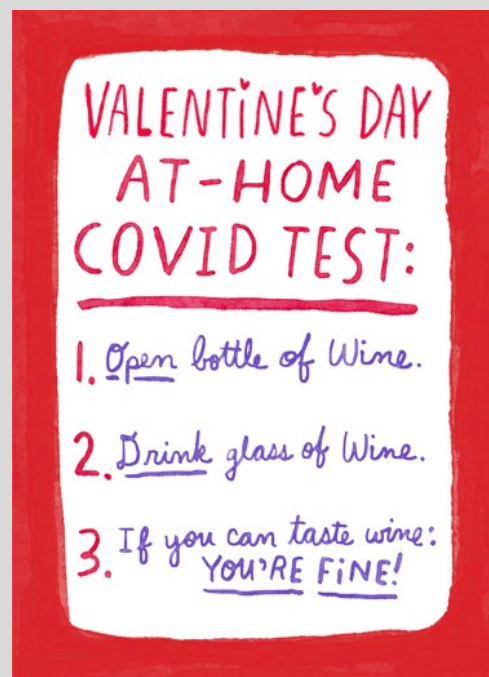 VALENTINE'S DAY
AT-HOME
COVID TEST:
1. Open bottle of Wine.
2. Drink glass of Wine.
3. If you can taste wine:
YOU'RE FINE!